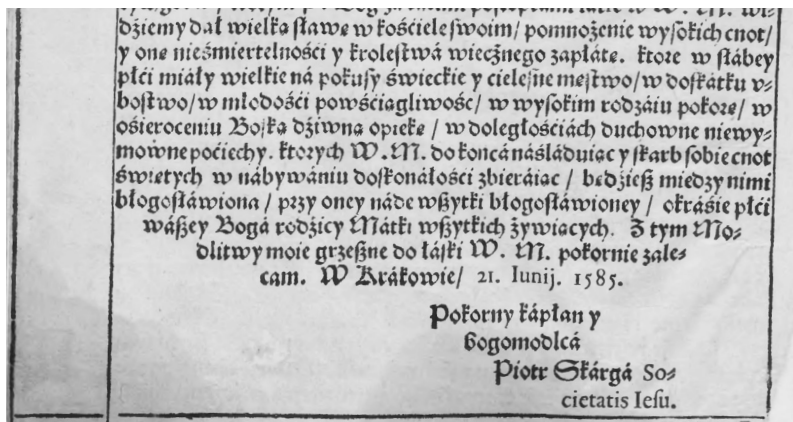 dźiemy dał wielką sławę w kośćiele swoim / pomnożenie wysokich cnot /
y one nieśmiertelnośći y krolestwá wiecżnego zapłátę. ktore w słábey
płći miáły wielkie ná pokusy świeckie y ćielesne męstwo / w dostátku v-
bostwo / w młodośći powśćiągliwość / w wysokim rodzáiu pokorę / w
ośieroceniu Boską dźiwną opiekę / w doległośćiách duchowne niewy-
mowne poćiechy. ktorych W. M. do końcá náśláduiąc y skarb sobie cnot
świętych w nábywániu doskonáłośći zbieráiąc / będźiesz miedzy nimi
błogosłáwiona / przy oney náde wszytki błogosłáwioney / okrásie płći
wászey Bogá rodźicy Mátki wszytkich żywiących. Z tym Mo-
dlitwy moie grzeszne do łáski W. M. pokornie zale-
cam. W Krákowie / 21. Iunij. 1585.
Pokorny kápłan y
bogomodlcá
Piotr Skárgá So-
cietatis Iesu.